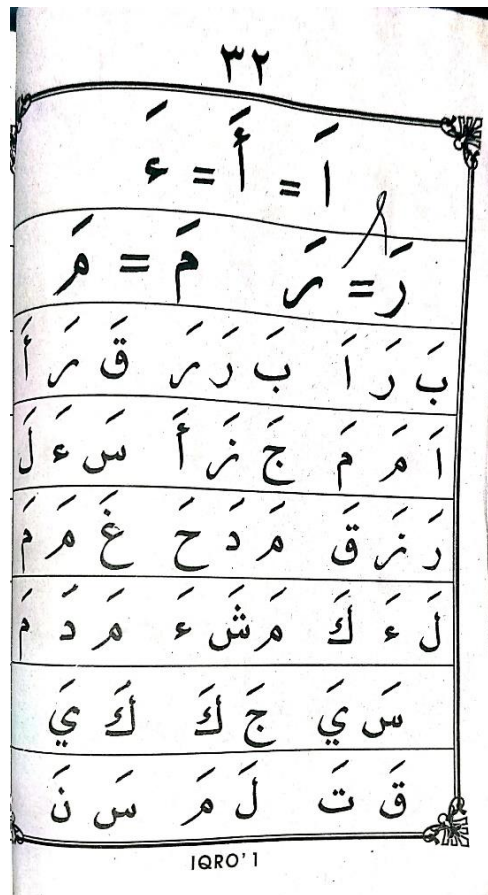 ٣٢
اَ = أَ = ءَ
رَ = رَ مَ = مَ
بَ رَ اَ بَ رَ رَ قَ رَ أَ
اَ مَ مَ جَ زَ أَ سَ ءَ لَ
رَ زَ قَ مَ دَ حَ غَ مَ مَ
لَ ءَ كَ مَ شَ ءَ مَ دَ مَ
سَ يَ جَ كَ كَ يَ
قَ تَ لَ مَ سَ نَ
IQRO' 1